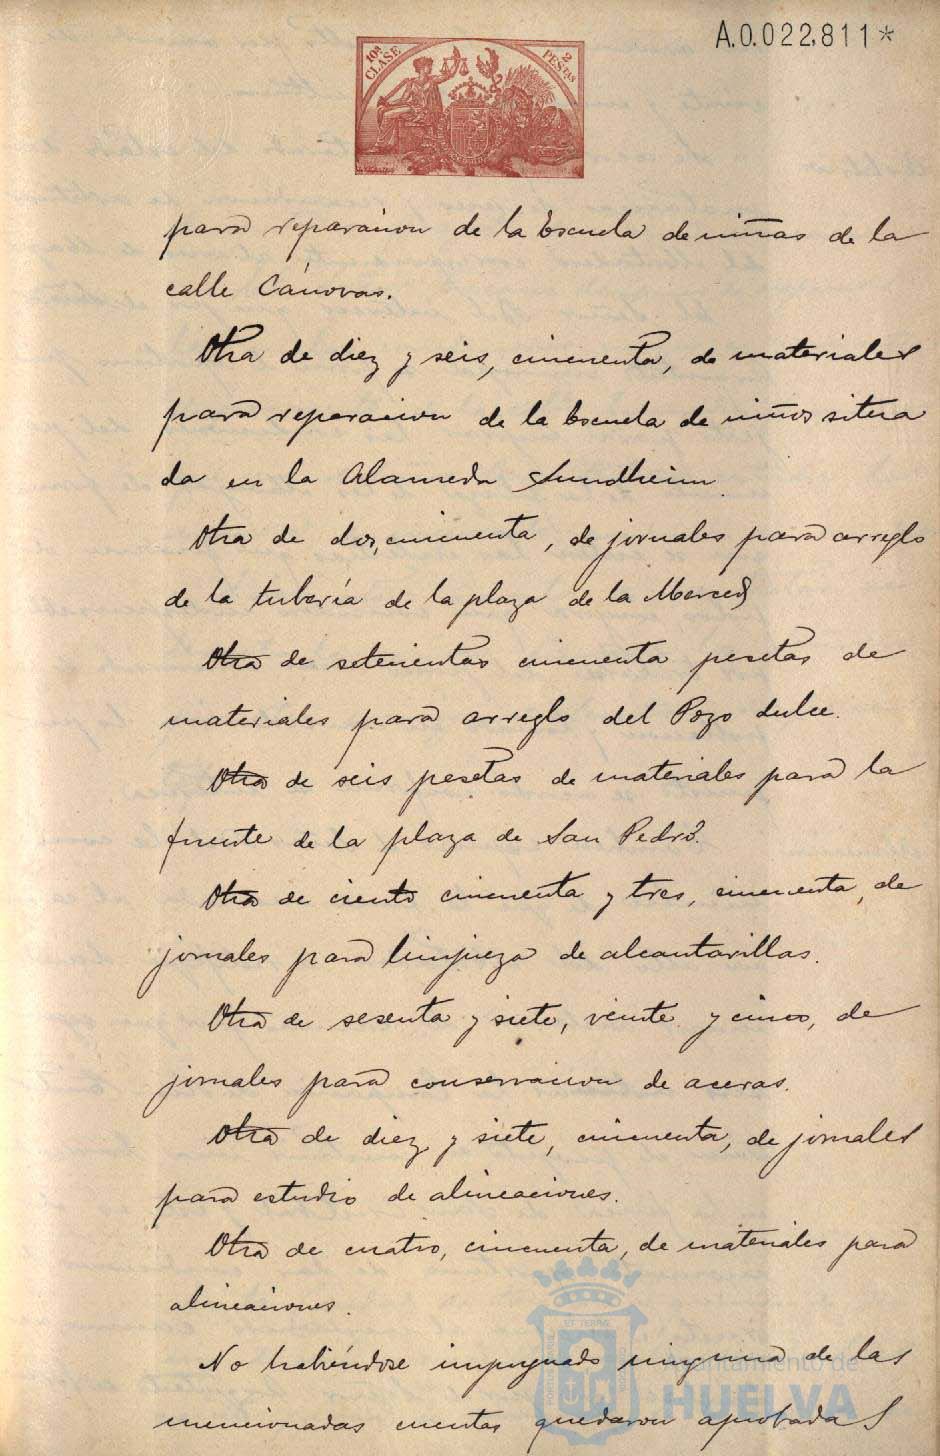 A.0.022,811*
10ª CLASE
2 PESTAS
para reparacion de la Escuela de niñas de la
calle Cánovas.
Otra de diez y seis, cincuenta, de materiales
para reparacion de la Escuela de niños situa
da en la Alameda Sundheim
Otra de dos, cincuenta, de jornales para arreglo
de la tubería de la plaza de la Merced
Otra de setecientas cincuenta pesetas de
materiales para arreglo del Pozo dulce.
Otra de seis pesetas de materiales para la
fuente de la plaza de San Pedro.
Otra de ciento cincuenta y tres, cincuenta, de
jornales para limpieza de alcantarillas.
Otra de sesenta y siete, veinte y cinco, de
jornales para conservacion de aceras.
Otra de diez y siete, cincuenta, de jornales
para estudio de alineaciones.
Otra de cuatro, cincuenta, de materiales para
alineaciones.
No habiéndose impugnado ninguna de las
mencionadas cuentas quedaron aprobadas
Ayuntamiento de
HUELVA